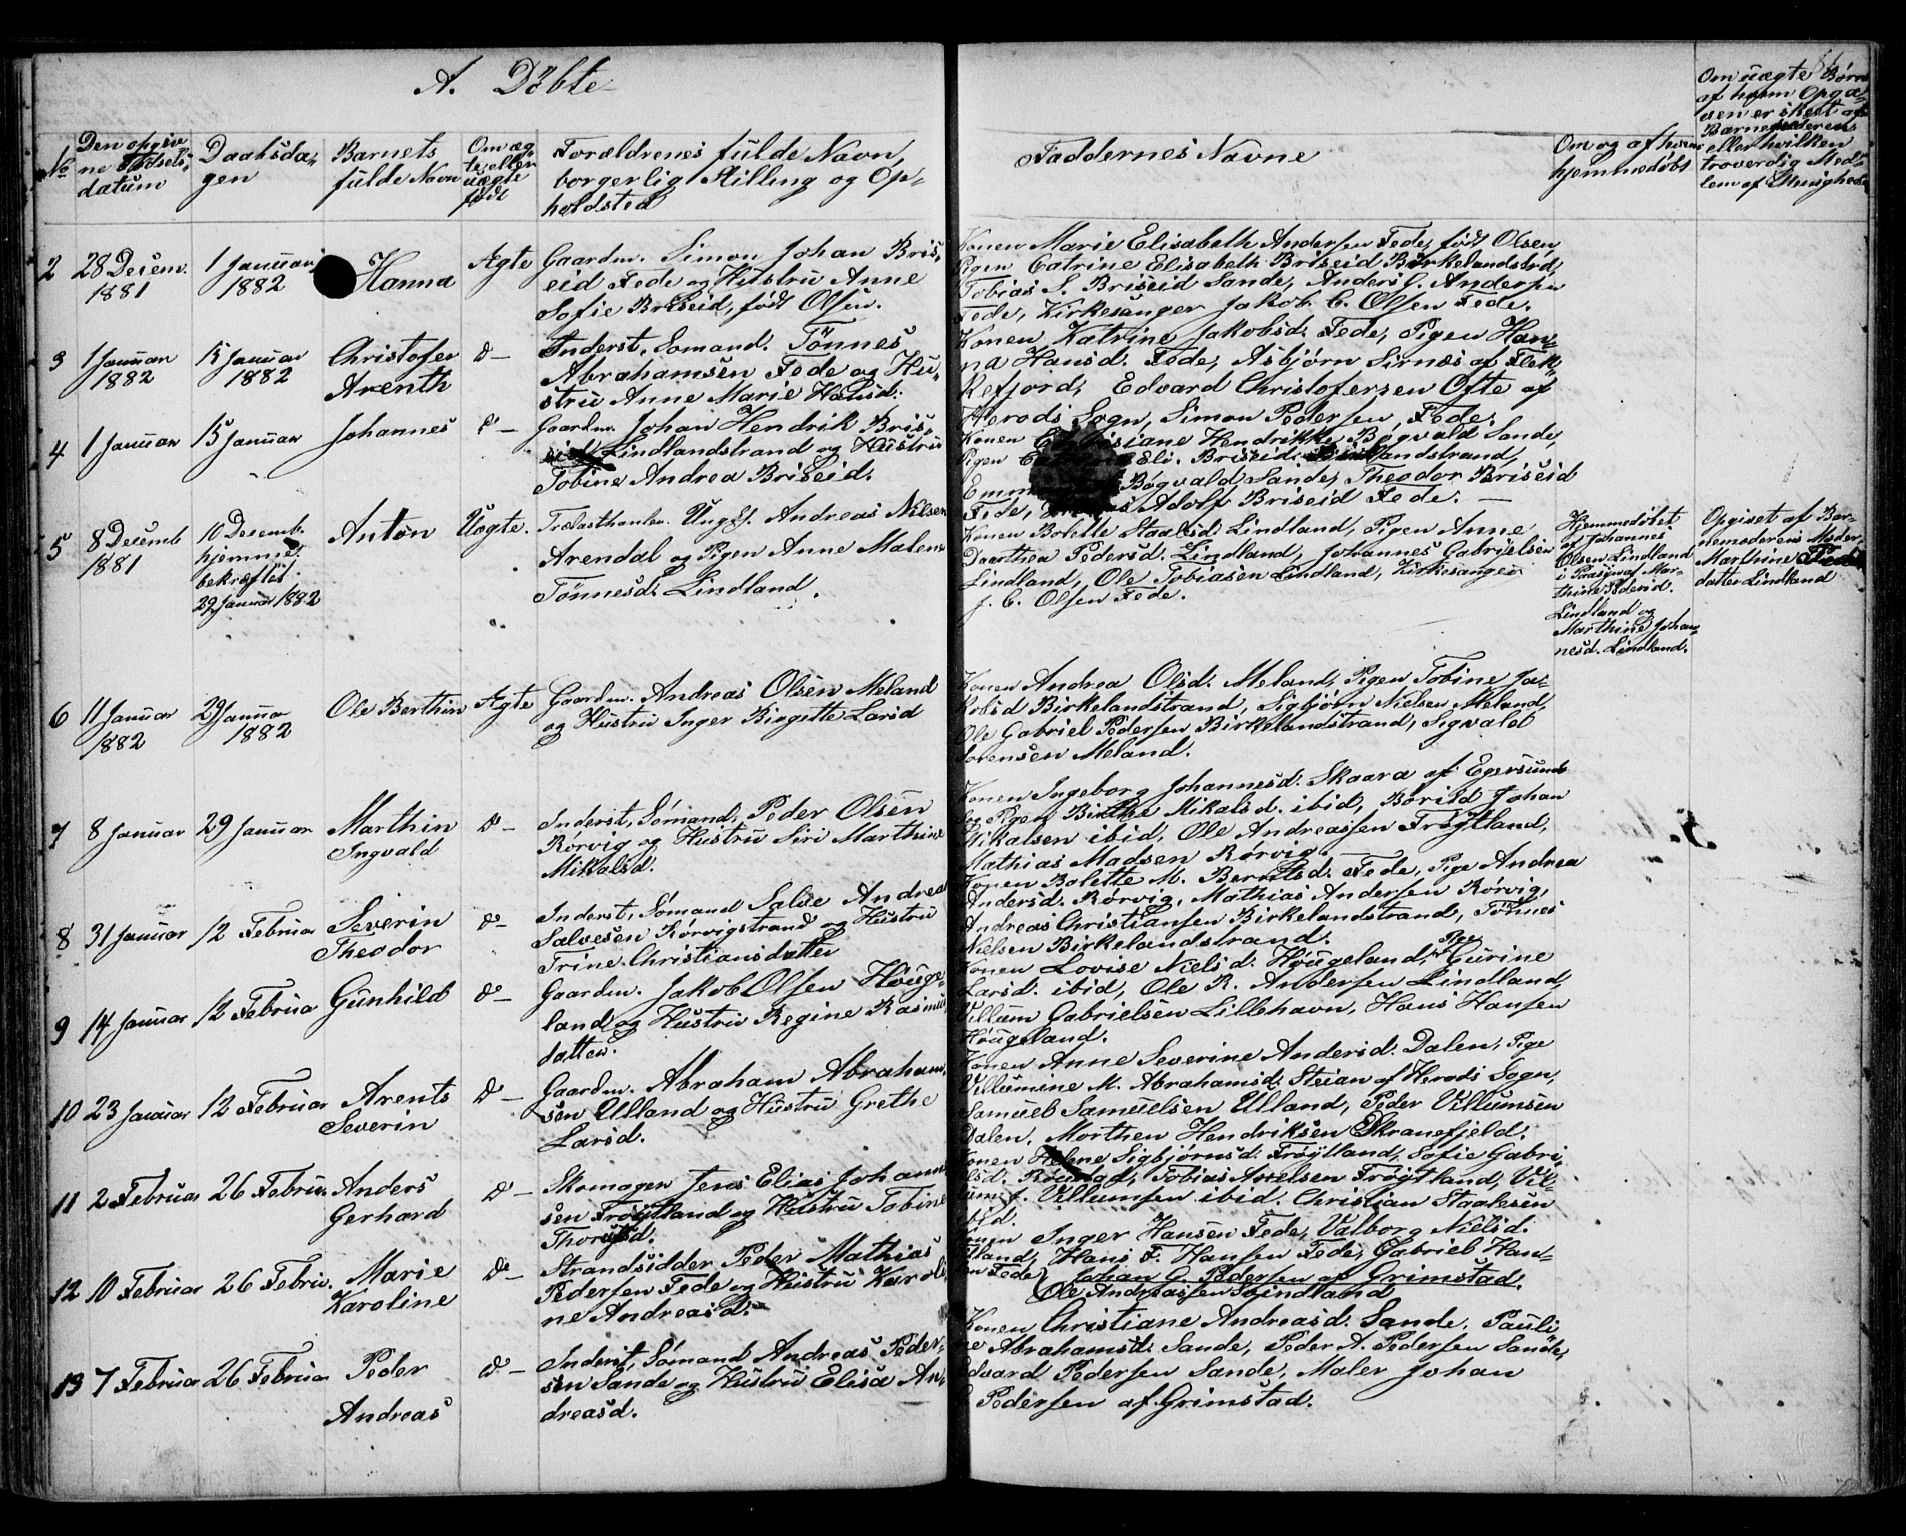 A. Döbte
No
Den opgiv
ne Fødsels-
datum
Daabsda-
gen
Barnets
fulde Navn
Om æg
te eller
uægte
født
Forældrenes fulde Navn,
borgerlig Stilling og Op-
holdsted
Faddernes Navne
Om og af hvem
hjemmedøbt
Om uægte Børn
af hvem Opga-
ven er skeet af
Barnefaderens
eller hvilken
troverdig Med-
lem af Menighed
2
28 Decem.
1881
1 Januar
1882
Hanna
Ægte
Gaardm. Simon Johan Bris-
eid Fede og Hustru Anne
Sofie Briseid, født Olsen.
Konen Marie Elisabeth Andersen Fede, født Olsen
Pigen Catrine Elisabeth Briseid Birkelandstrd,
Tobias S. Briseid Sande, Anders G. Andersen
Fede, Kirkesanger Jakob C. Olsen Fede.
3
1 Januar
1882
15 Januar
1882
Christofer
Arenth
d-
Inderst, Sømand. Tönnes
Abrahamsen Fede og Hu-
stru Anne Marie Hansd.
Konen Katrine Jakobsd. Fede, Pigen Han-
na Hansd. Fede, Asbjørn Sirnæs af Flek-
kefjord, Edvard Christofersen Ofte af
Herods Sogn, Simon Pedersen, Fede.
4
1 Januar
15 Januar
Johannes
d-
Gaardm. Johan Hendrik Bris-
eid Lindlandstrand og Hustru
Tobine Andrea Briseid.
Konen Christiane Hendrikke Bøgvald Sande
Pigen Eli. Briseid Lindlandstrand,
Emm Bøgvald Sande, Theodor Briseid
Fede, Adolf Briseid Fede.
5
8 Decemb
1881
10 Desemb.
hjemme.
bekræftet
29 Januar 1882
Anton
Uægte.
Trælasthandler. Ungk. Andreas Nilsen
Arendal og Pigen Anne Malene
Tönnesd. Lindland.
Konen Bolette Staalsd. Lindland, Pigen Anne
Dorthea Pedersd. Lindland, Johannes Gabrielsen
Lindland, Ole Tobiasen Lindland, Kirkesanger
J. C. Olsen Fede.
Hjemmedöbt
af Johannes
Olsen Lindland
i Paasyn af Mar-
thine Pedersd.
Lindland og
Marthine Johan-
nesd. Lindland.
Opgivet af Bar-
nemoderens Moder
Marthine Peders
datter Lindland
6
11 Januar
1882
29 Januar
1882
Ole Berthin
Ægte
Gaardm. Andreas Olsen Meland
og Hustru Inger Birgette Larsd
Konen Andrea Olsd. Meland, Pigen Tobine Ja-
kobsd Birkelandstrand, Sigbjørn Nielsen Meland,
Ole Gabriel Pedersen Birkelandstrand, Sigvald
Sorensen Meland.
7
8 Januar
29 Januar
Marthin
Ingvald
d-
Inderst, Sömand, Peder Olsen
Rørvig og Hustru Siri Marthine
Mikalsd.
Konen Ingeborg Johannesd. Skaara af Egersund
og Pigen Birthe Mikalsd. ibid, Børild Johan
Mikalsen ibid, Ole Andreassen Frøytland,
Mathias Madsen Rørvig.
8
31 Januar
12 Februar
Severin
Theodor
d-
Inderst, Sömand Salve Andrea
Salvesen Rørvigstrand og Hustru
Trine Christiansdatter
Konen Bolette M. Berntsd. Fede, Pige Andrea
Andersd. Rørvig, Mathias Andersen Rørvig,
Andreas Christiansen Birkelandstrand, Tönnes
Nielsen Birkelandstrand.
9
14 Januar
12 Februar
Gunhild
d-
Gaardm. Jakob Olsen Houge-
land og Hustru Regine Rasmus
datter.
Konen Lovise Nielsd. Høugeland, Pige Gurine
Larsd. ibid, Ole R. Andersen Lindland,
Villum Gabrielsen Lillehavn, Hans Hansen
Høugeland.
10
23 Januar
12 Februar
Arents
Severin
d-
Gaardm. Abraham Abraham-
sen Ulland og Hustru Grethe
Larsd.
Konen Anne Severine Andersd. Dalen, Pige
Villumine M. Abrahamsd. Steian af Herods Sogn,
Samuel Samuelsen Ulland, Peder Villumsen
Dalen, Morthen Hendriksen Skranefjeld.
11
2 Februar
26 Februar
Anders
Gerhard
d-
Skomager Jens Elias Johann-
sen Frøytland og Hustru Tobine
Thorsd.
Konen Helene Sigbjørnsd. Frøytland, Sofie Gabri-
elsd. Tobias Axelsen Frøytland, Vil-
lum J. Villumsen ibid. Christian Staalesen
ibid.
12
10 Februar
26 Februar
Marie
Karoline
d-
Strandsidder Peder Mathias
Pedersen Fede og Hustru Karoli-
ne Andreasd.
Konen Inger Hansen Fede, Valborg Nielsd.
Ulland, Hans F. Hansen Fede, Gabriel Han-
sen Fede, Johan G. Pedersen af Grimstad.
Ole Andreassen Lindland
13
7 Februar
26 Februar
Peder
Andreas
d-
Inderst, Sömand Andreas Peder-
sen Sande og Hustru Elisa An-
dreasd.
Konen Christiane Andreasd. Sande, Pauli
ne Abrahamsd. Sande, Peder A. Pedersen Sande,
Edvard Pedersen Sande, Maler Johan
Pedersen af Grimstad.